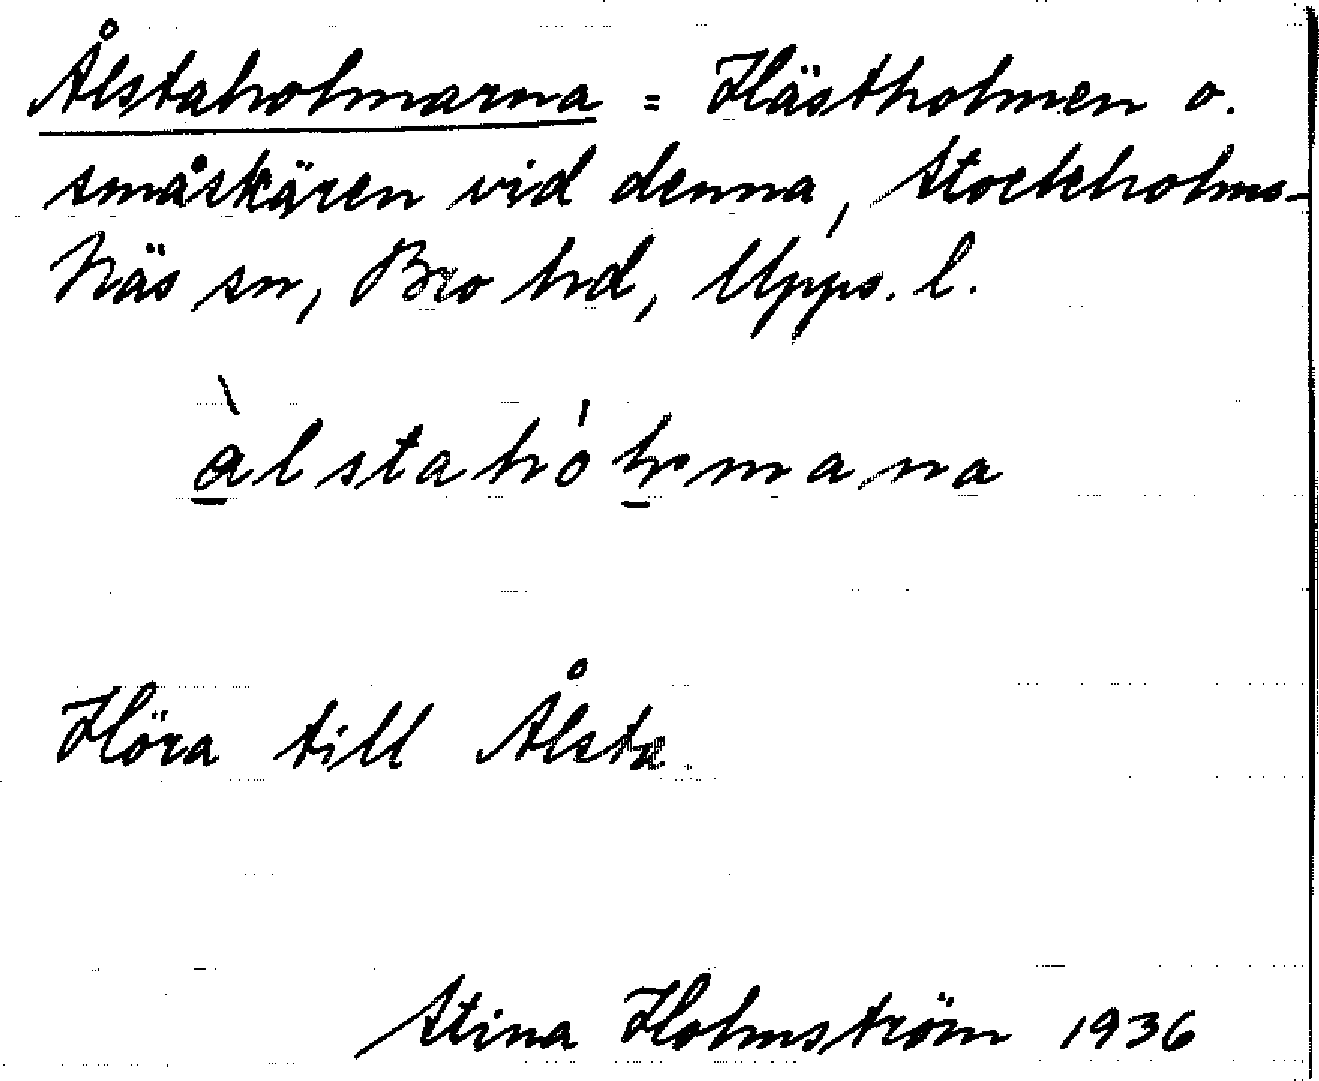 Ålstaholmarna = Hästholmen o.
småskären vid denna, Stockholms-
Näs sn, Bro hd, Upps. l.
àlstahólmana
Höra till Ålsta.
Stina Holmström 1936